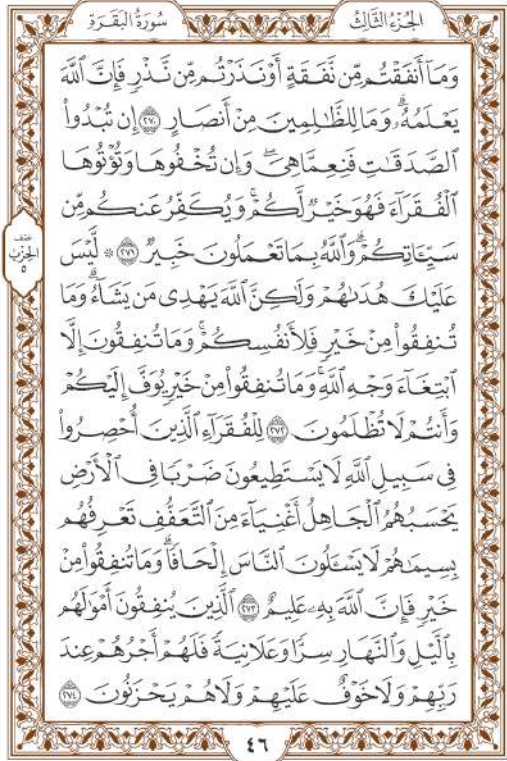 الجُزْءُ الثَّالِثُ
سُورَةُ البَقَرَةِ
وَمَآ أَنفَقْتُم مِّن نَّفَقَةٍ أَوْ نَذَرْتُم مِّن نَّذْرٍ فَإِنَّ ٱللَّهَ
يَعْلَمُهُۥۗ وَمَا لِلظَّٰلِمِينَ مِنْ أَنصَارٍ ٢٧٠ إِن تُبْدُوا۟
ٱلصَّدَقَٰتِ فَنِعِمَّا هِىَۖ وَإِن تُخْفُوهَا وَتُؤْتُوهَا
ٱلْفُقَرَآءَ فَهُوَ خَيْرٌ لَّكُمْۚ وَيُكَفِّرُ عَنكُم مِّن
سَيِّـَٔاتِكُمْۗ وَٱللَّهُ بِمَا تَعْمَلُونَ خَبِيرٌ ٢٧١ ۞ لَّيْسَ
عَلَيْكَ هُدَىٰهُمْ وَلَٰكِنَّ ٱللَّهَ يَهْدِى مَن يَشَآءُۗ وَمَا
تُنفِقُوا۟ مِنْ خَيْرٍ فَلِأَنفُسِكُمْۚ وَمَا تُنفِقُونَ إِلَّا
ٱبْتِغَآءَ وَجْهِ ٱللَّهِۚ وَمَا تُنفِقُوا۟ مِنْ خَيْرٍ يُوَفَّ إِلَيْكُمْ
وَأَنتُمْ لَا تُظْلَمُونَ ٢٧٢ لِلْفُقَرَآءِ ٱلَّذِينَ أُحْصِرُوا۟
فِى سَبِيلِ ٱللَّهِ لَا يَسْتَطِيعُونَ ضَرْبًا فِى ٱلْأَرْضِ
يَحْسَبُهُمُ ٱلْجَاهِلُ أَغْنِيَآءَ مِنَ ٱلتَّعَفُّفِ تَعْرِفُهُم
بِسِيمَٰهُمْ لَا يَسْـَٔلُونَ ٱلنَّاسَ إِلْحَافًاۗ وَمَا تُنفِقُوا۟ مِنْ
خَيْرٍ فَإِنَّ ٱللَّهَ بِهِۦ عَلِيمٌ ٢٧٣ ٱلَّذِينَ يُنفِقُونَ أَمْوَٰلَهُم
بِٱلَّيْلِ وَٱلنَّهَارِ سِرًّا وَعَلَانِيَةً فَلَهُمْ أَجْرُهُمْ عِندَ
رَبِّهِمْ وَلَا خَوْفٌ عَلَيْهِمْ وَلَا هُمْ يَحْزَنُونَ ٢٧٤
نِصْف
الحِزْبُ
٥
٤٦